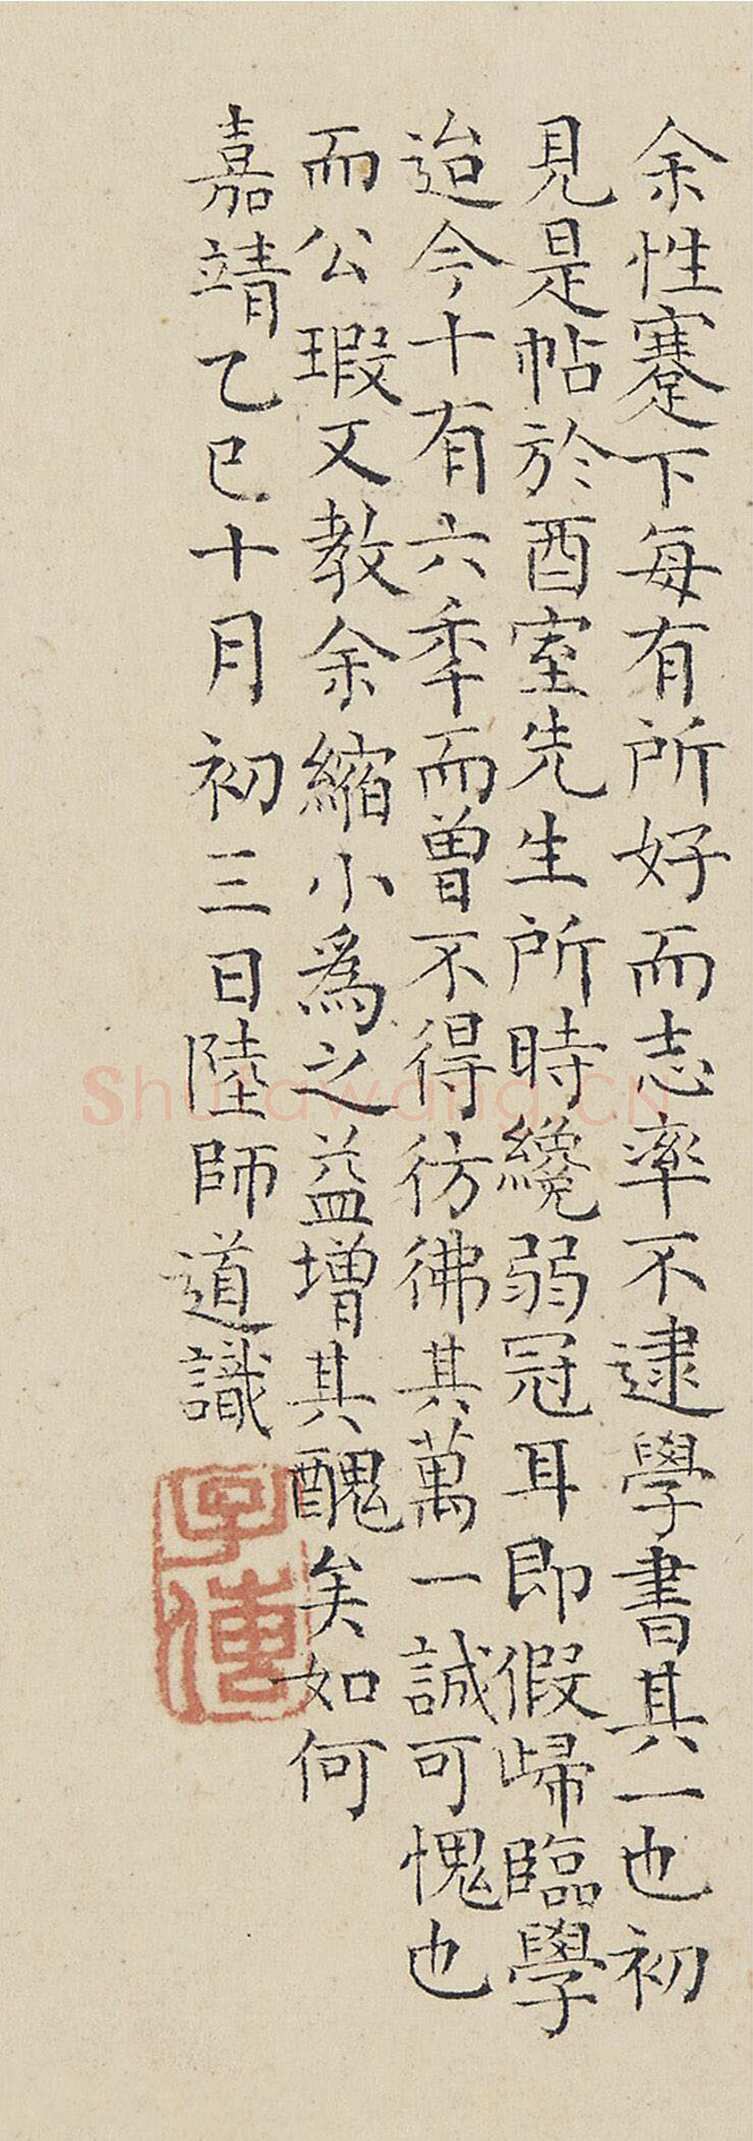 余性蹇下每有所好而志率不逮學書其一也初
見是帖於酉室先生所時纔弱冠耳即假歸臨學
迨今十有六秊而曽不得彷彿其萬一誠可愧也
而公瑕又教余縮小爲之益増其醜矣如何
嘉靖乙巳十月初三日陸師道識
子傳